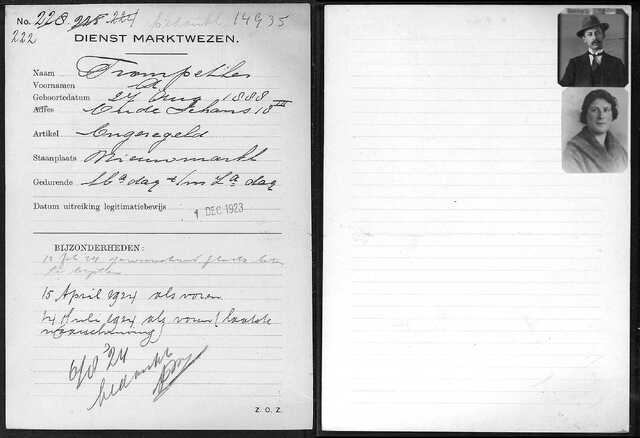 No. 223 228 224 bedankt 14935
222
DIENST MARKTWEZEN.
Naam Trompetter
Voornamen A
Geboortedatum 27 Aug 1888
Adres Oude Schans 18 III
Artikel Ongeregeld
Staanplaats Nieuwmarkt
Gedurende Ma dag t/m Za dag
Datum uitreiking legitimatiebewijs 1 DEC 1923
BIJZONDERHEDEN:
12 feb 24 gewaarschuwd plaats beter
te
15 April 1924 als voren
14 Juli 1924 als voren! laatste
waarschuwing
6/8 '24
bedankt
Z. O. Z.